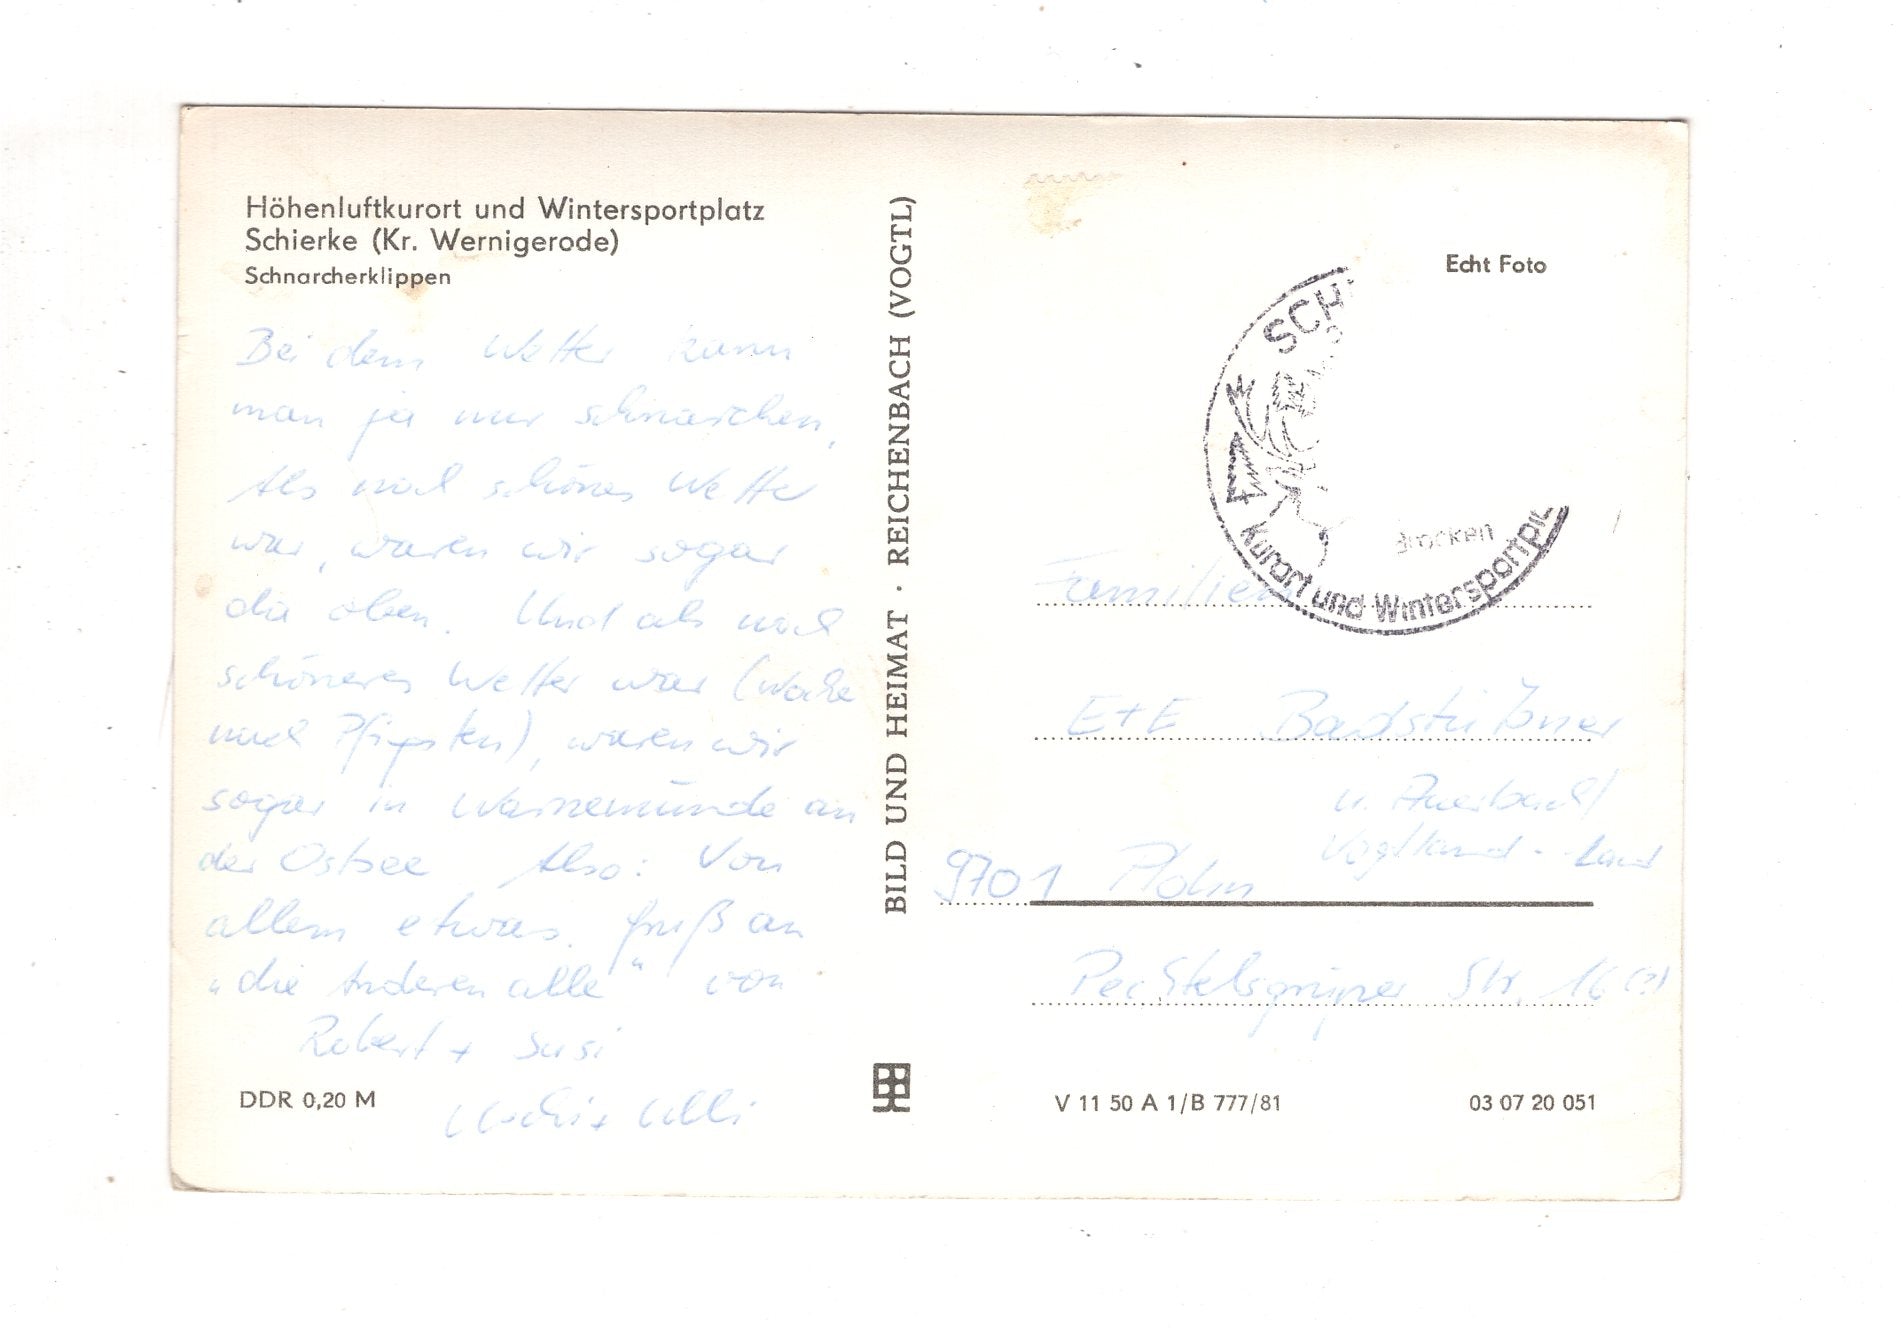 Höhenluftkurort und Wintersportplatz
Schierke (Kr. Wernigerode)
Schnarcherklippen
Bei dem Wetter kann
man ja nur schnarchen.
Als noch schönes Wetter
war, waren wir sogar
da oben. Und als noch
schöneres Wetter war (Woche
nach Pfingsten), waren wir
sogar in Warnemünde an
der Ostsee. Also: Von
allem etwas. Gruß an
"die Anderen alle" von
Robert + Susi
+ Ulli
DDR 0,20 M
BILD UND HEIMAT · REICHENBACH (VOGTL)
Echt Foto
SCH
Brocken
Kurort und Wintersportpl
Familien
E+E Badstübner
u. Auerbach/
Vogtland-Land
9701 Plohn
Str. 16 (?)
V 11 50 A 1/B 777/81
03 07 20 051